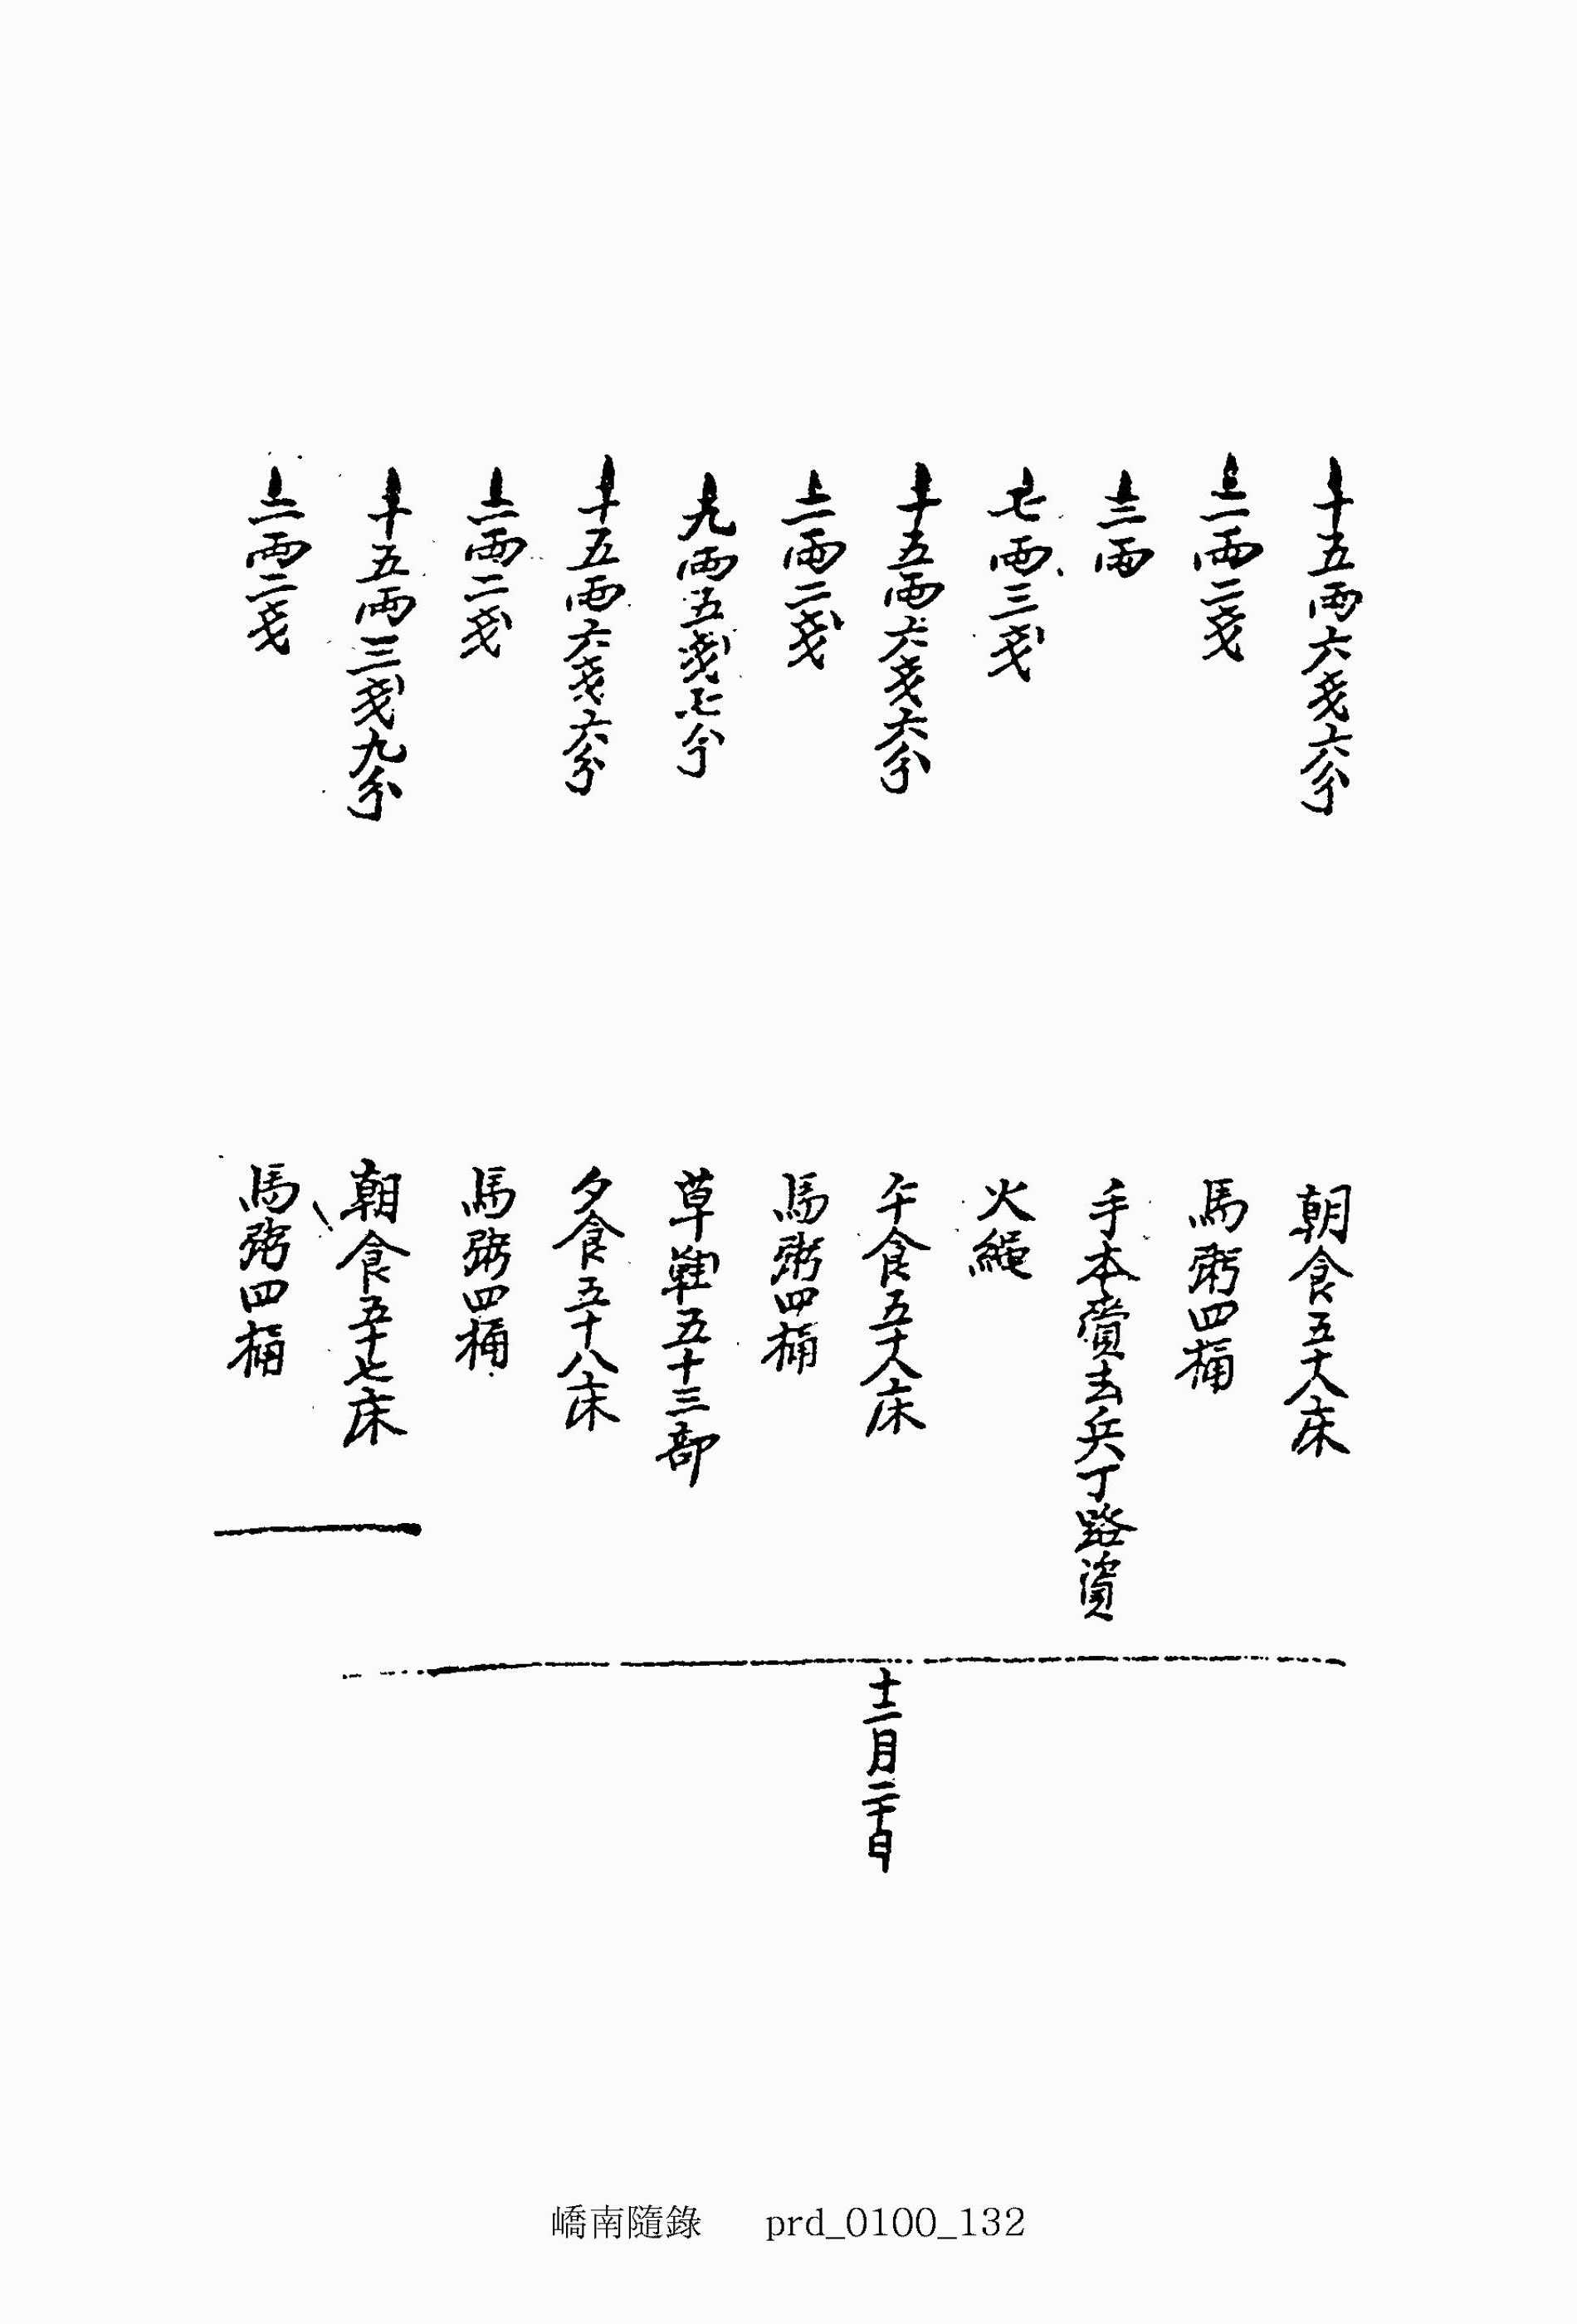 十五兩六戔六分 朝食五十八床
二兩二戔 馬粥四桶
三兩 手本賷去兵丁路資
七兩三戔 火繩
十五兩六戔六分 午食五十八床
二兩二戔 馬粥四桶
九兩五戔七分 草鞋五十三部
十五兩六戔六分 夕食五十八床
二兩二戔 馬粥四桶
十二月二十日
十五兩三戔九分 朝食五十七床
二兩二戔 馬粥四桶
嶠南隨錄 prd_0100_132